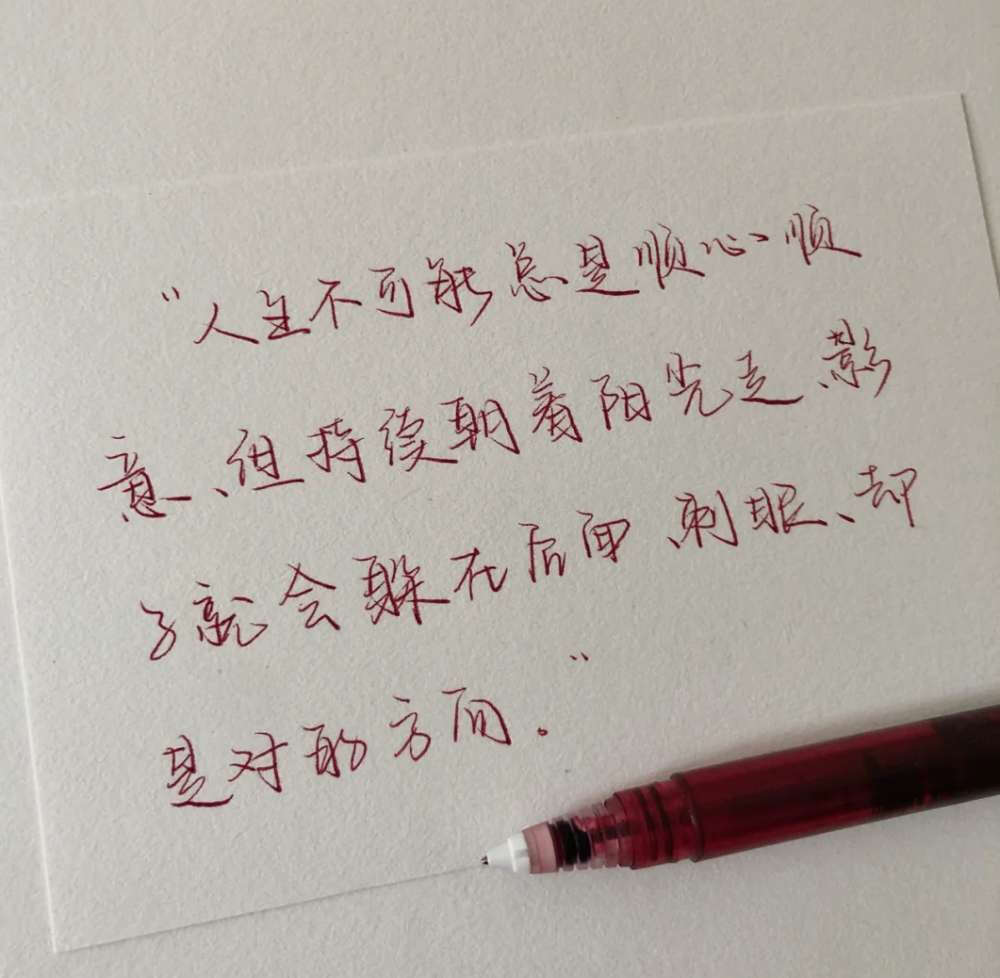 “人生不可能总是顺心顺
意、但持续朝着阳光走、影
子就会躲在后面、刺眼、却
是对的方向。”